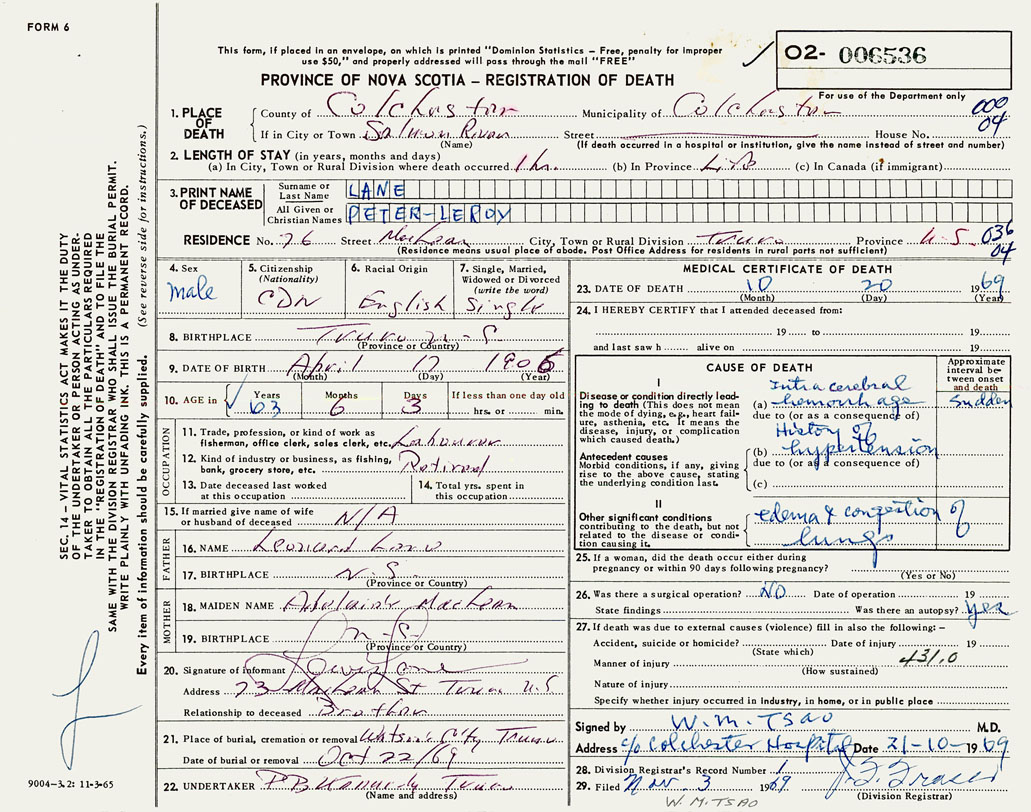 FORM 6
This form, if placed in an envelope, on which is printed "Dominion Statistics – Free, penalty for improper
use $50," and properly addressed will pass through the mail "FREE"
O2- 006536
PROVINCE OF NOVA SCOTIA – REGISTRATION OF DEATH
For use of the Department only
1. PLACE OF DEATH County of Colchester Municipality of Colchester 000
If in City or Town Salmon River Street House No. 04
(Name) (If death occurred in a hospital or institution, give the name instead of street and number)
2. LENGTH OF STAY (in years, months and days)
(a) In City, Town or Rural Division where death occurred 1 hr. (b) In Province Life (c) In Canada (if immigrant)
3. PRINT NAME OF DECEASED
Surname or Last Name LANE
All Given or Christian Names PETER-LEROY
RESIDENCE No. 76 Street MacLean City, Town or Rural Division Truro Province N.S. 036
(Residence means usual place of abode. Post Office Address for residents in rural parts not sufficient) 04
4. Sex male
5. Citizenship (Nationality) CDN
6. Racial Origin English
7. Single, Married, Widowed or Divorced (write the word) Single
8. BIRTHPLACE Truro N-S
(Province or Country)
9. DATE OF BIRTH April 17 1906
(Month) (Day) (Year)
10. AGE in Years 63 Months 6 Days 3 If less than one day old hrs. or min.
OCCUPATION
11. Trade, profession, or kind of work as fisherman, office clerk, sales clerk, etc. Labourer
12. Kind of industry or business, as fishing, bank, grocery store, etc. Retired
13. Date deceased last worked at this occupation
14. Total yrs. spent in this occupation
15. If married give name of wife or husband of deceased N/A
FATHER
16. NAME Leonard Lane
17. BIRTHPLACE N.S.
(Province or Country)
MOTHER
18. MAIDEN NAME Adelaide MacLean
19. BIRTHPLACE N-S-
(Province or Country)
20. Signature of informant Lewis Lane
Address 73 MacLean St Truro N.S
Relationship to deceased Brother
21. Place of burial, cremation or removal City Truro
Date of burial or removal Oct 22/69
22. UNDERTAKER Kennedy Truro
(Name and address)
MEDICAL CERTIFICATE OF DEATH
23. DATE OF DEATH 10 20 1969
(Month) (Day) (Year)
24. I HEREBY CERTIFY that I attended deceased from:
19 to 19
and last saw h alive on 19
CAUSE OF DEATH
Approximate interval between onset and death
I
Disease or condition directly leading to death (This does not mean the mode of dying, e.g., heart failure, asthenia, etc. It means the disease, injury, or complication which caused death.)
(a) Intra cerebral hemorrhage Sudden
due to (or as a consequence of)
Antecedent causes
Morbid conditions, if any, giving rise to the above cause, stating the underlying condition last.
(b) History of hypertension
due to (or as a consequence of)
(c)
II
Other significant conditions contributing to the death, but not related to the disease or condition causing it.
edema & congestion of
lungs
25. If a woman, did the death occur either during
pregnancy or within 90 days following pregnancy?
(Yes or No)
26. Was there a surgical operation? NO Date of operation 19
State findings Was there an autopsy? yes
27. If death was due to external causes (violence) fill in also the following: –
Accident, suicide or homicide? Date of injury 19
(State which)
Manner of injury 431.0
(How sustained)
Nature of injury
Specify whether injury occurred in Industry, in home, or in public place
Signed by W.M. TSAO M.D.
Address c/o Colchester Hospital Date 21-10-1969
28. Division Registrar's Record Number 1
29. Filed Nov. 3 1969 J. F. Fraser
(Division Registrar)
W.M. TSAO
SEC. 14 – VITAL STATISTICS ACT MAKES IT THE DUTY
OF THE UNDERTAKER OR PERSON ACTING AS UNDER-
TAKER TO OBTAIN ALL THE PARTICULARS REQUIRED
IN THE "REGISTRATION OF DEATH" AND TO FILE THE
SAME WITH THE DIVISION REGISTRAR WHO SHALL ISSUE THE BURIAL PERMIT.
WRITE PLAINLY WITH UNFADING INK. THIS IS A PERMANENT RECORD.
Every item of information should be carefully supplied. (See reverse side for instructions.)
9004-3.2: 11-3-65